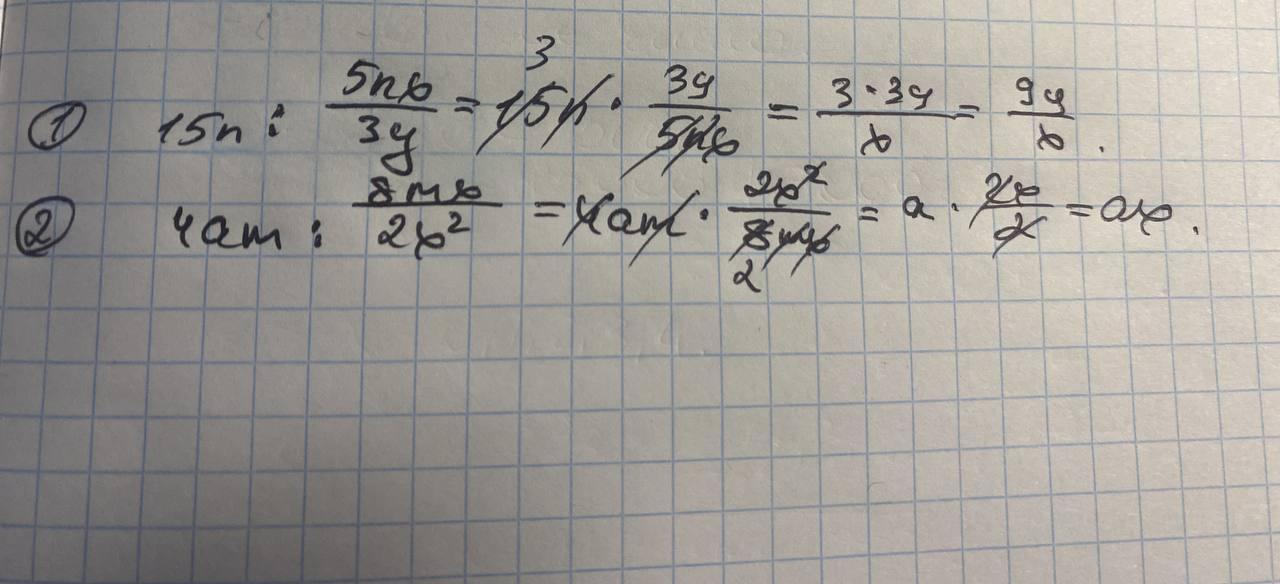 ① 15n : 5nb/3y = 15n · 3y/5nb = 3·3y/b = 9y/b . 3
② 4am : 8mb/2b² = 4am · 2b²/8mb = a · 2b/2 = ab . 2